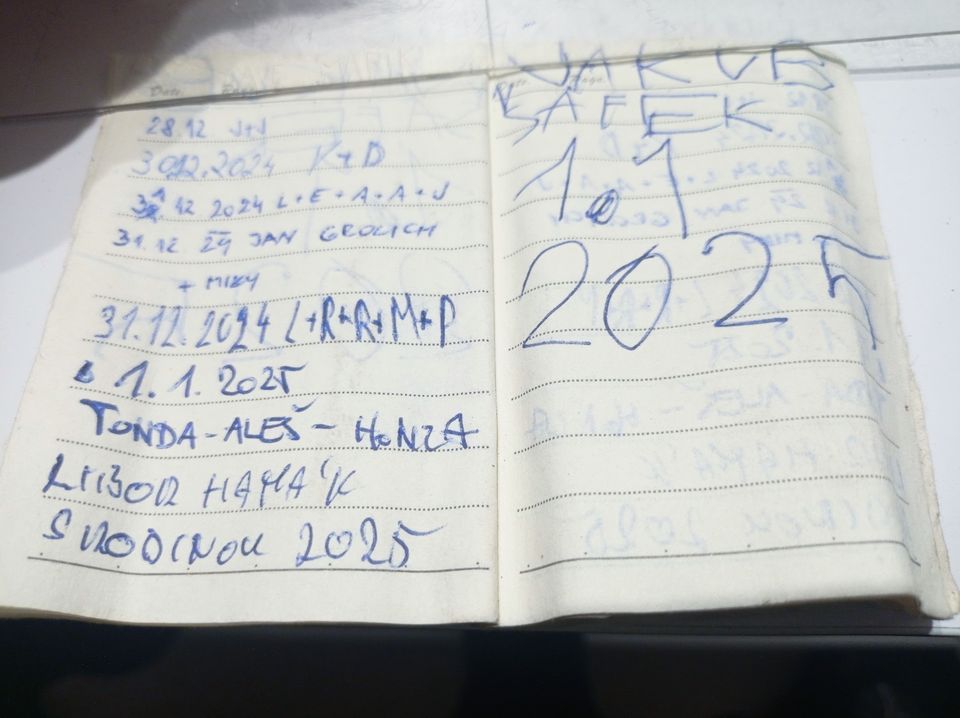 Date: Page:
28.12 J+J
30.12.2024 K+D
31.12 2024 L+E+A+A+J
31.12 24 JAN GROLICH
+ MIKY
31.12.2024 L+R+R+M+P
1.1.2025
TONDA-ALEŠ-HONZA
LIBOR HAMAʹK
S RODINOU 2025
JAKUB
ŠAFEK
1.1
2025